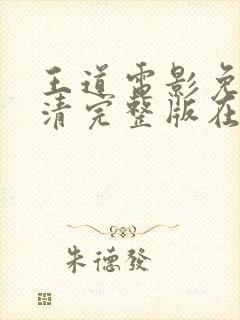 王道電影免
清完整版在
朱德發